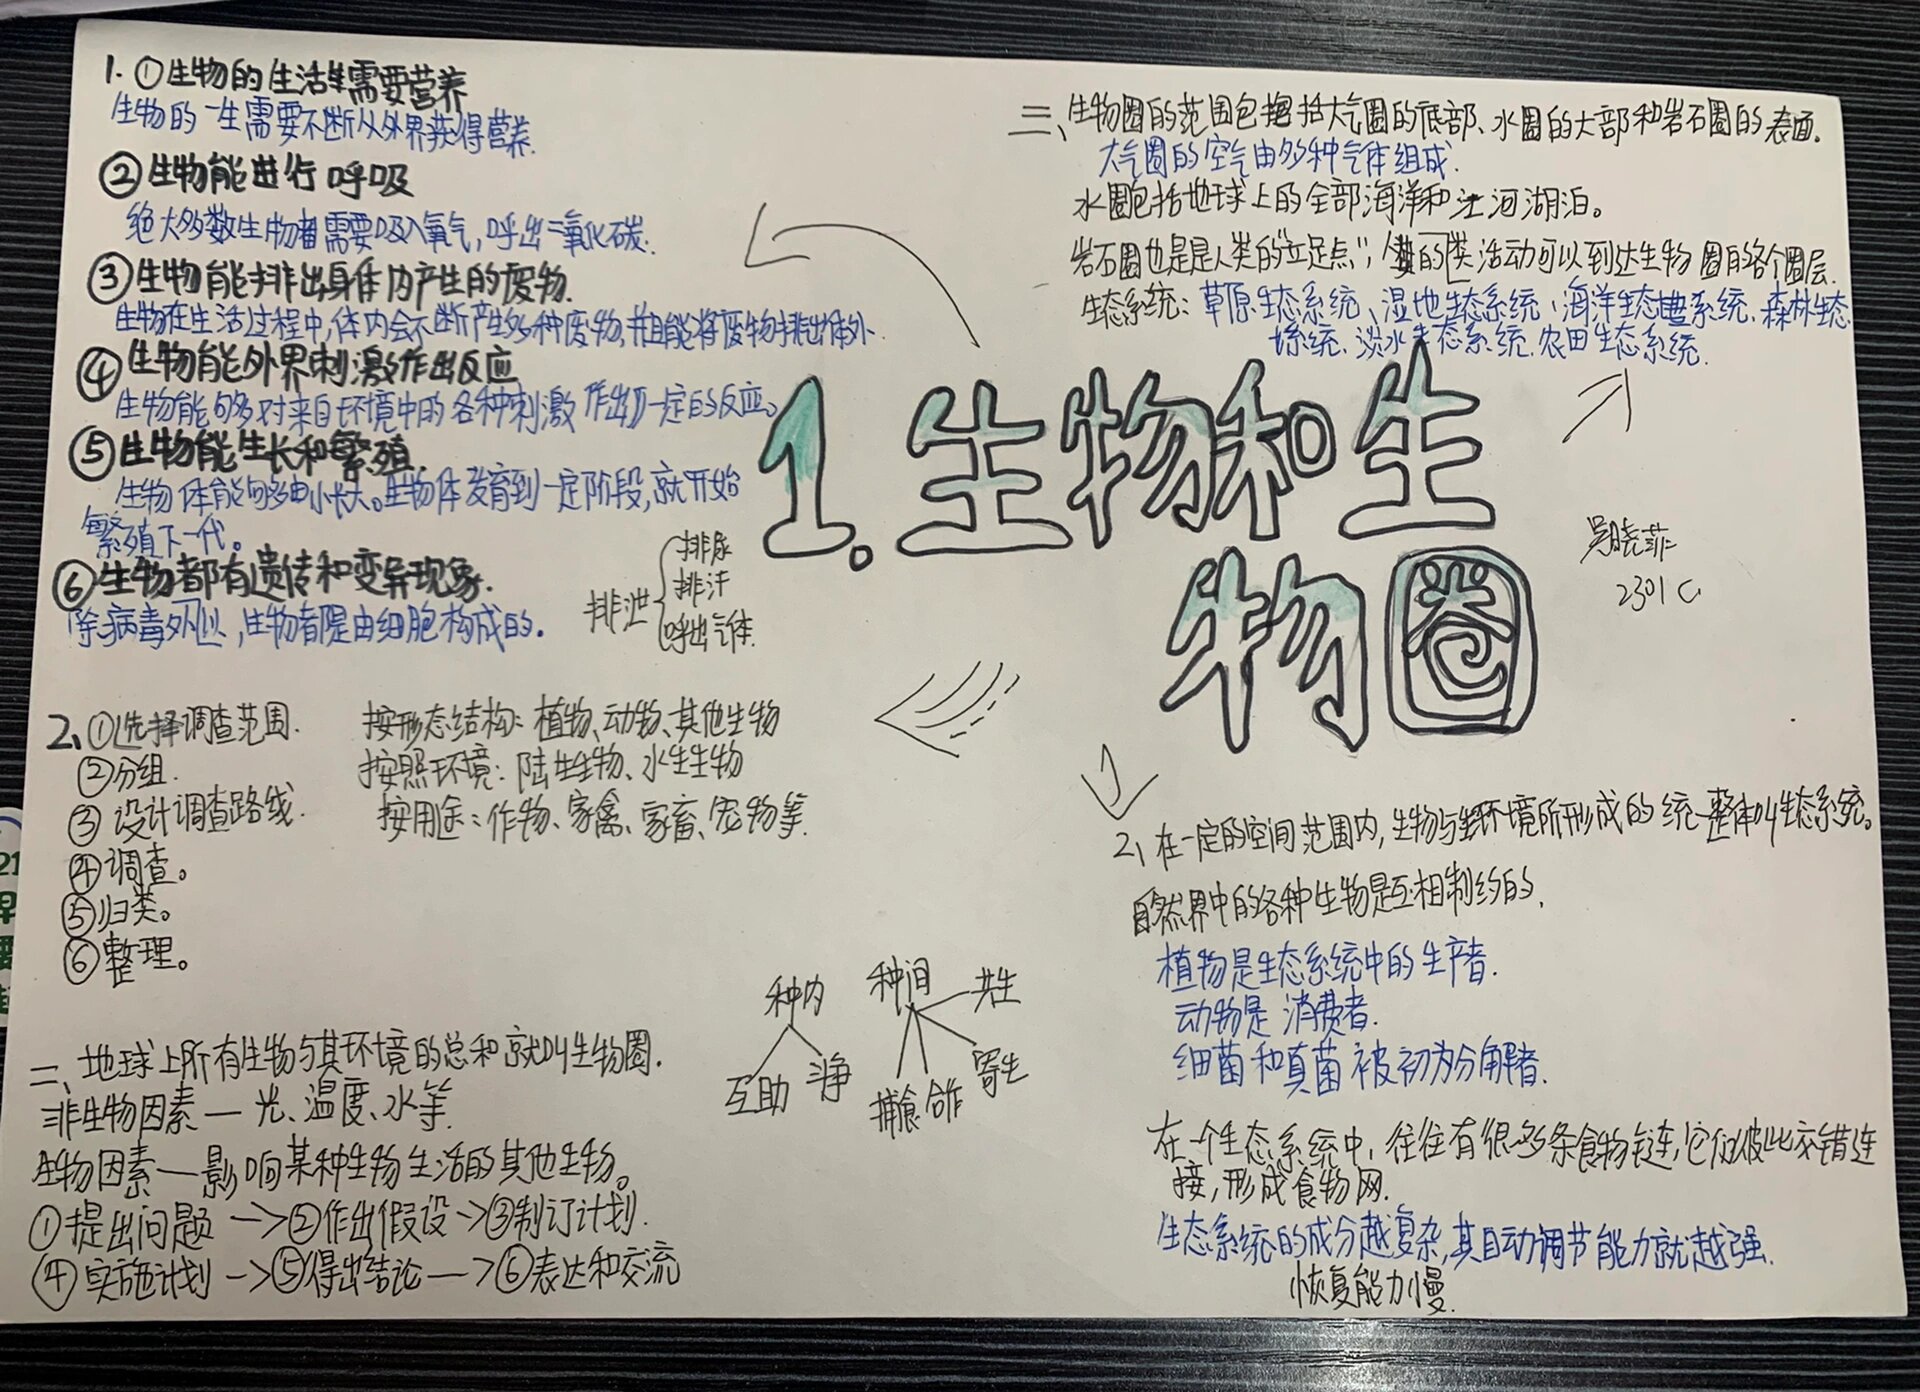 1.①生物的生活需要营养
生物的一生需要不断从外界获得营养.
②生物能进行呼吸
绝大多数生物都需要吸入氧气,呼出二氧化碳.
③生物能排出身体内产生的废物.
生物在生活过程中,体内会不断产生多种废物,并且能将废物排出体外.
④生物能外界刺激作出反应
生物能够多对来自环境中的各种刺激作出一定的反应。
⑤生物能生长和繁殖.
生物体能够多由小长大。生物体发育到一定阶段,就开始
繁殖下一代。
⑥生物都有遗传和变异现象.
除病毒外以,生物都是由细胞构成的.
排泄
排尿
排汗
呼出气体
2、①选择调查范围.
②分组.
③设计调查路线.
④调查。
⑤归类。
⑥整理。
按形态结构:植物、动物、其他生物
按照环境:陆生生物、水生生物
按用途:作物、家禽、家畜、宠物等.
二、地球上所有生物与其环境的总和就叫生物圈.
非生物因素—光、温度、水等.
生物因素—影响某种生物生活的其他生物。
①提出问题->②作出假设->③制订计划.
④实施计划->⑤得出结论—>⑥表达和交流
种内
互助 斗争
种间 共生
捕食 合作 寄生
1.生物和生
物圈
吴晓菲
2301C
三、生物圈的范围包括大气圈的底部、水圈的大部和岩石圈的表面.
大气圈的空气由多种气体组成.
水圈包括地球上的全部海洋和江河湖泊。
岩石圈也是是人类的“立足点”;人的类活动可以到达生物圈的各个圈层.
生态系统:草原生态系统、湿地生态系统、海洋生态系统、森林生态
系统、淡水生态系统.农田生态系统.
2、在一定的空间范围内,生物与环境所形成的统一整体叫生态系统。
自然界中的各种生物是互相制约的.
植物是生态系统中的生产者.
动物是消费者.
细菌和真菌被初为分解者.
在一个生态系统中,往往有很多条食物链,它们彼此交错连
接,形成食物网.
生态系统的成分越复杂,其自动调节能力就越强.
恢复能力慢.